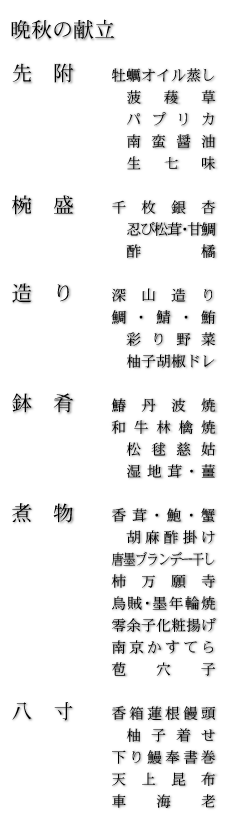 晩秋の献立
先附 牡蠣オイル蒸し
菠薐草
パプリカ
南蛮醤油
生七味
椀盛 千枚銀杏
忍び松茸・甘鯛
酢橘
造り 深山造り
鯛・鯖・鮪
彩り野菜
柚子胡椒ドレ
鉢肴 鰆丹波焼
和牛林檎焼
松毬慈姑
湿地茸・薑
煮物 香茸・鮑・蟹
胡麻酢掛け
唐墨ブランデー干し
柿万願寺
烏賊・墨年輪焼
零余子化粧揚げ
南京かすてら
苞穴子
八寸 香箱蓮根饅頭
柚子着せ
下り鰻奉書巻
天上昆布
車海老